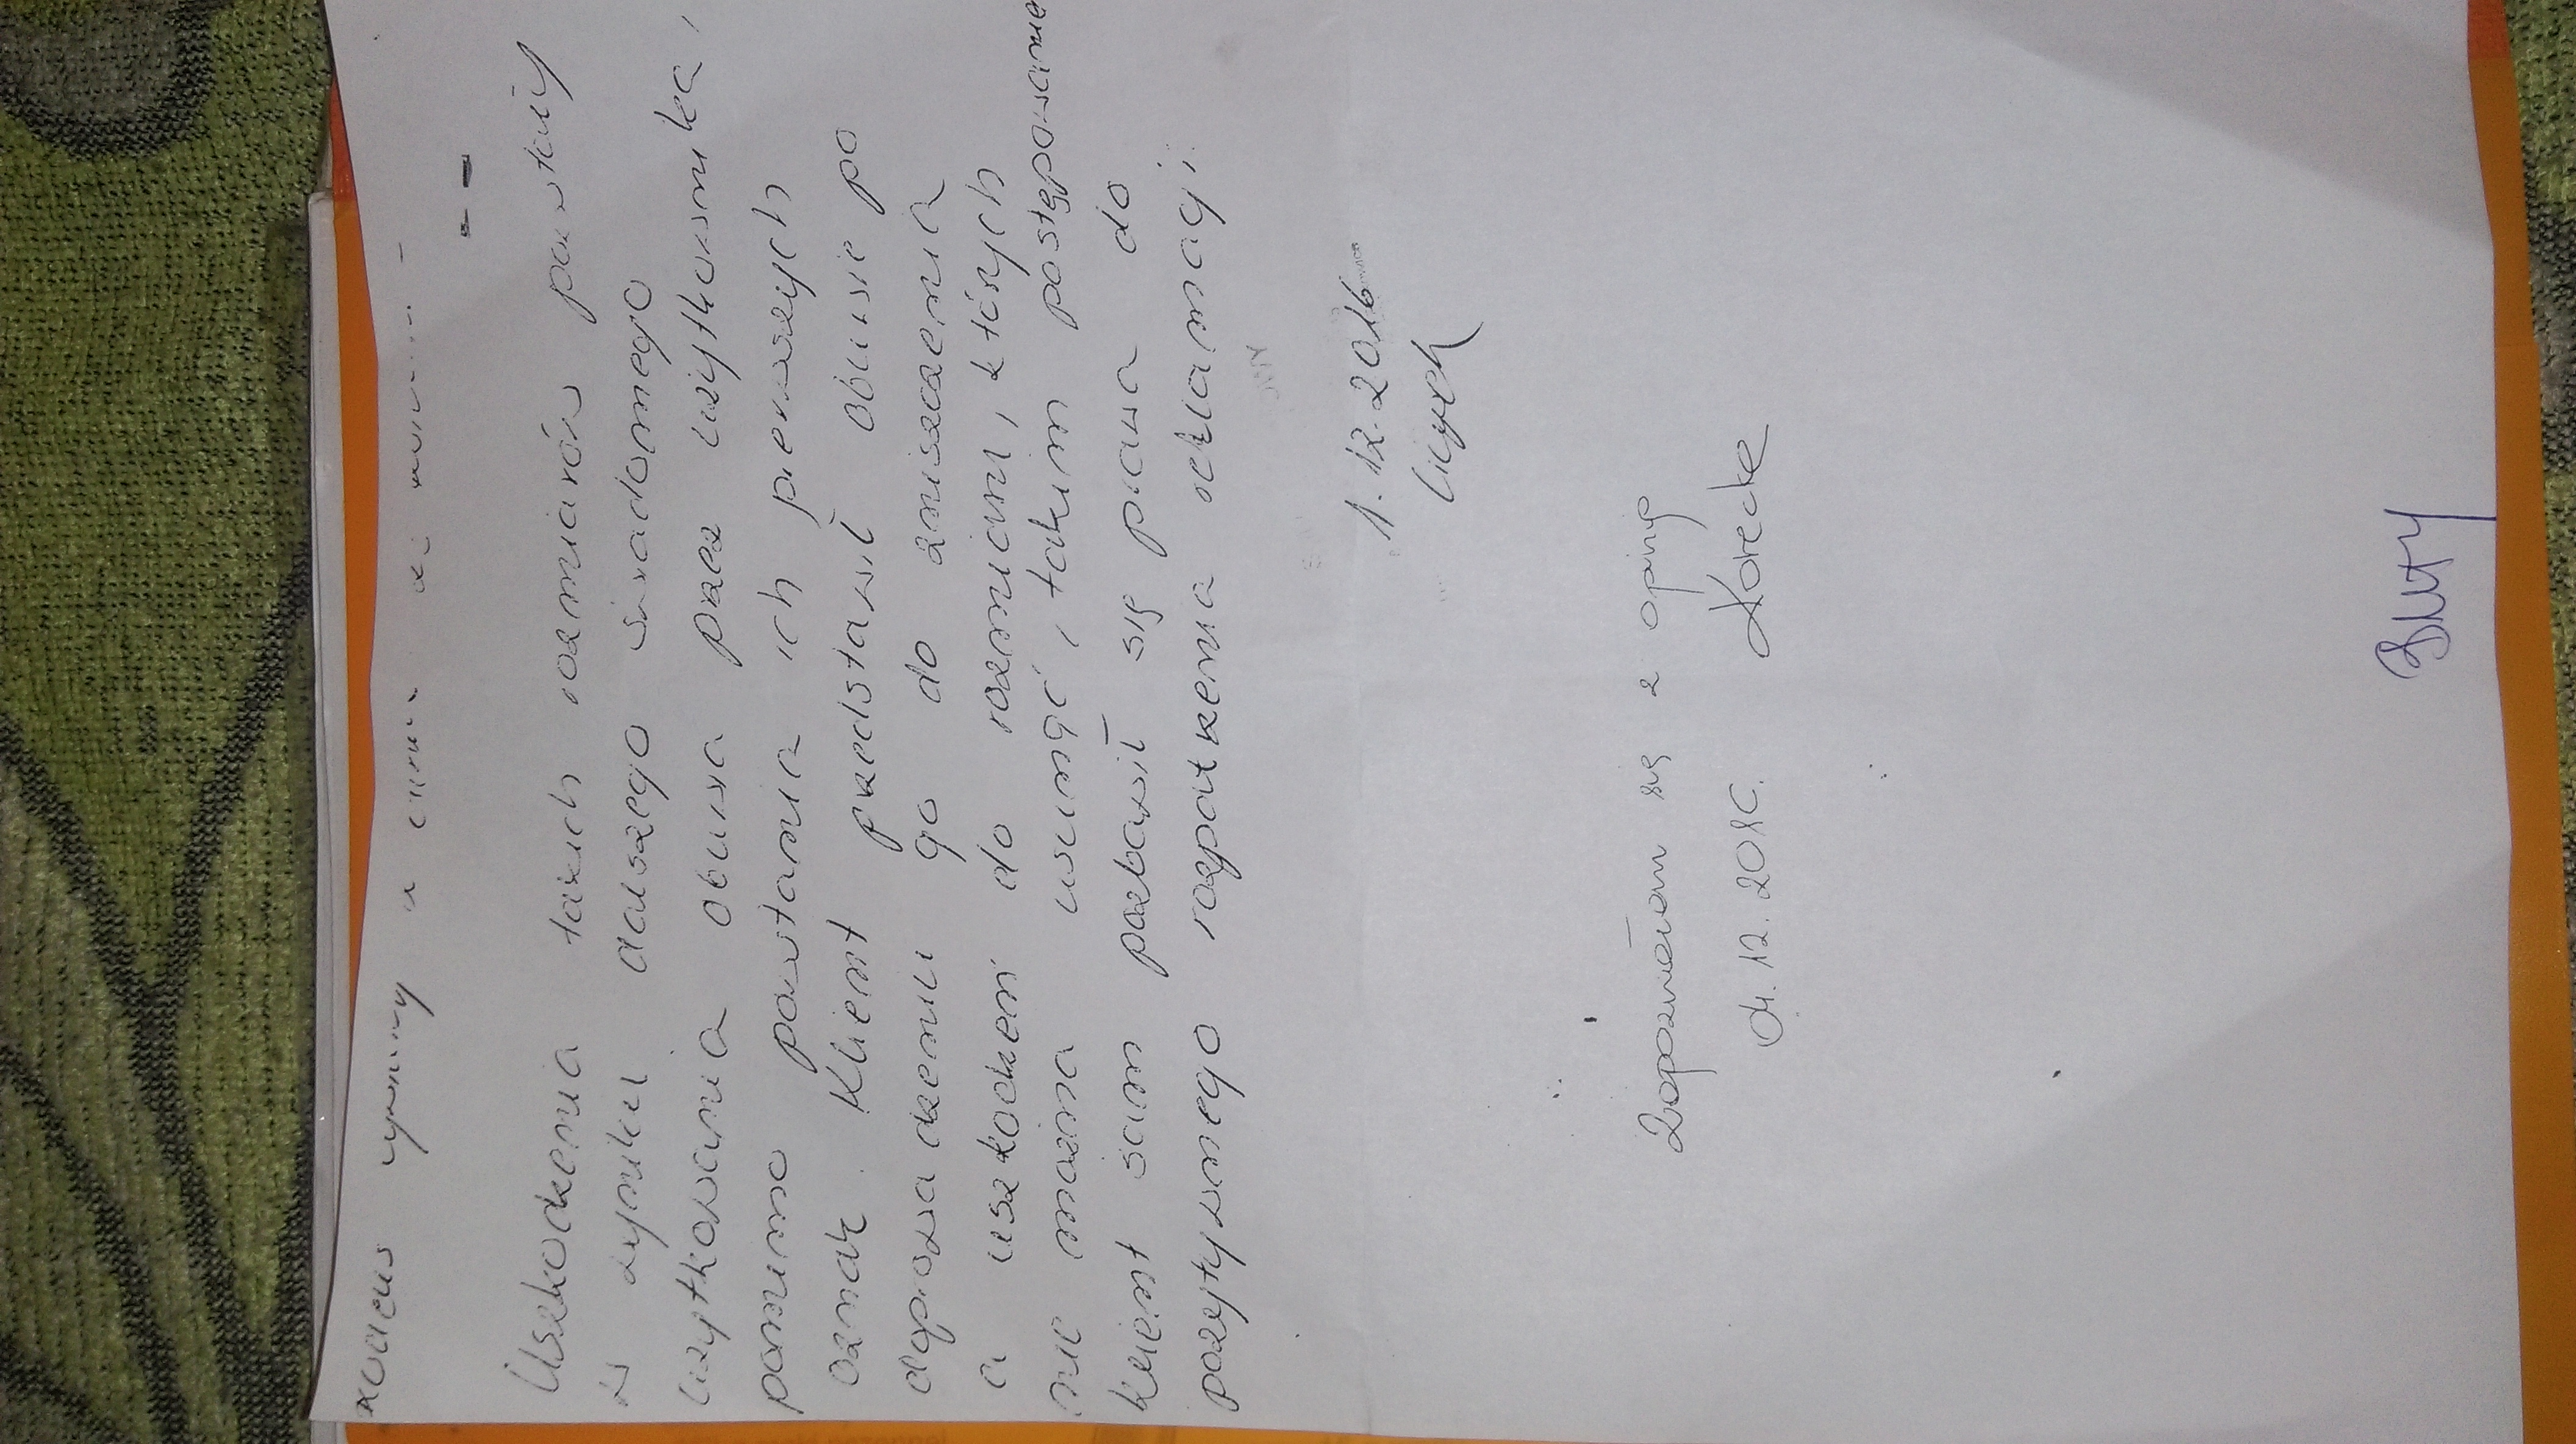 Uszkodzenia takich rozmiarów powstały
w wyniku dalszego świadomego
użytkowania obuwia przez użytkownika,
pomimo powstania ich pierwszych
oznak. Klient przedstawił obuwie po
doprowadzeniu go do zniszczenia
a uszkodzeń do rozmiaru, których
nie można usunąć, takim postępowanie
klient sam pozbawił się prawa do
pozytywnego rozpatrzenia reklamacji.
1.12.2016
Zapoznałam się z opinią
01.12.201C. Korecka
Buty